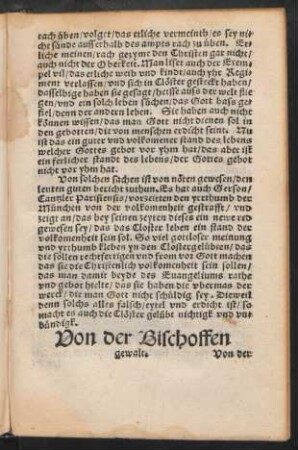 rach üben/volget/das etliche vermeinth/es sey ni-
cht sünde ausserhalb des ampts rach zu üben. Et-
liche meinen/rach gezyme den Christen gar nicht/
auch nicht der Oberkeit. Man liset auch der Exem-
pel vil/das etliche weib vnd kindt/auch yhr Regi-
ment verlassen/vnd sich in Clöster gesteckt haben/
dasselbige haben sie gesagt/heisse auss der welt flie-
gen/vnd ein solch leben süchen/das Gott bass ge-
fiel/denn der andern leben. Sie haben auch nicht
können wissen/das man Gott nicht dienen sol in
den gebotten/die von menschen erdicht seint. Nu
ist das ein guter vnd volkomener stand des lebens
welcher Gottes gebot vor yhm hat/das aber ist
ein ferlicher stande des lebens/der Gottes gebot
nicht vor yhm hat.
Von solchen sachen ist von nöten gewesen/den
leuten guten bericht zuthun. Es hat auch Gerson/
Cantzler Parisiensis/vorzeiten den yrrthumb der
München von der volkomenheit gestrafft/vnd
zeigt an/das bey seinen zeyten dieses ein newe red
gewesen sey/das das Closter leben ein stand der
volkomenheit sein sol. So viel gottloser meinung
vnd yrrthumb kleben yn den Clostergelübten/das
die sollen rechtfertigen vnd from vor Got machen
das sie die Christenlich volkomenheit sein sollen/
das man damit beyde des Euangeliums rathe
vnd gebot hielte/das sie haben die vbermas der
werck/die man Gott nicht schüldig sey. Dieweil
denn solchs alles falsch/eytel vnd erdicht ist/so
macht es auch die Clöster gelübt nichtigk vnd vn-
bündigk.
Von der Bischoffen
gewalt. Von der